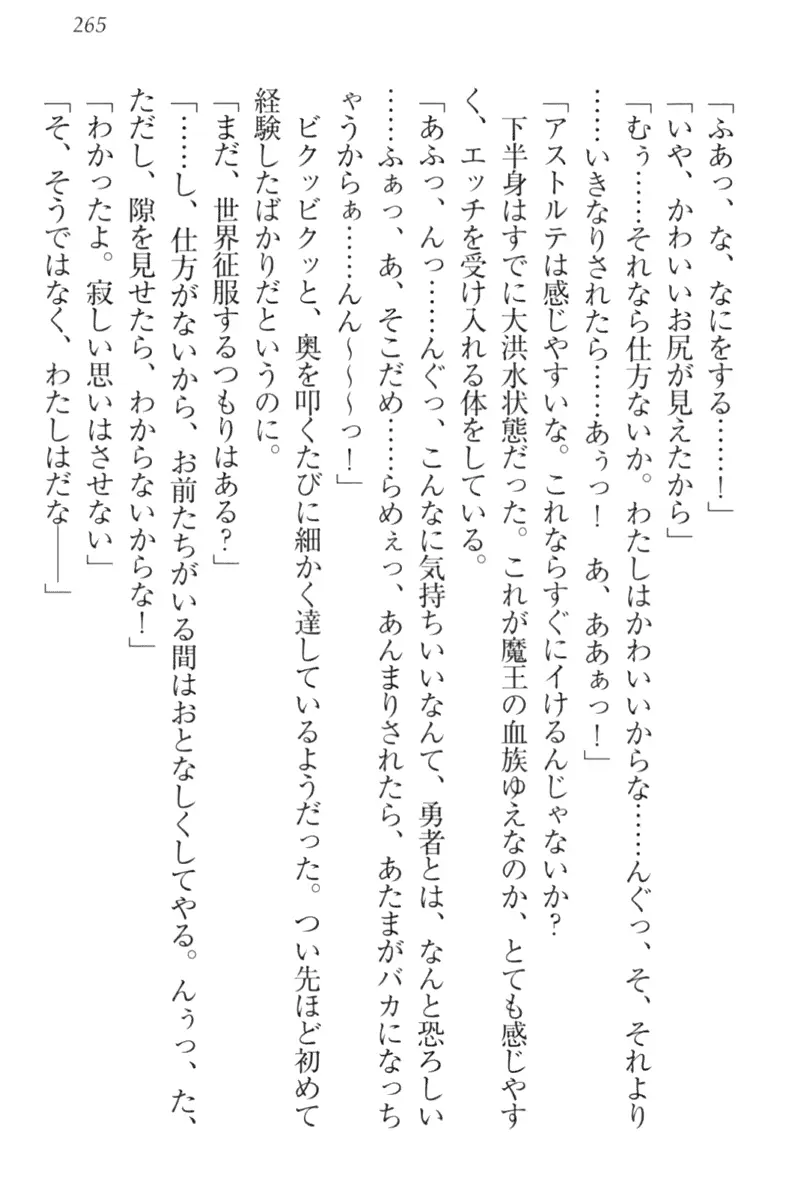 265
「ふあっ、な、なにをする……！」
「いや、かわいいお尻が見えたから」
「むぅ……それなら仕方ないか。わたしはかわいいからな……んぐっ、そ、それより
……いきなりされたら……あぅっ！　あ、ああぁっ！」
「アストルテは感じやすいな。これならすぐにイけるんじゃないか？
　下半身はすでに大洪水状態だった。これが魔王の血族ゆえなのか、とても感じやす
く、エッチを受け入れる体をしている。
「あふっ、んっ……んぐっ、こんなに気持ちいいなんて、勇者とは、なんと恐ろしい
……ふぁっ、あ、そこだめ……らめぇっ、あんまりされたら、あたまがバカになっち
ゃうからぁ……んん～～～っ！」
　ビクッビクッと、奥を叩くたびに細かく達しているようだった。つい先ほど初めて
経験したばかりだというのに。
「まだ、世界征服するつもりはある？」
「……し、仕方がないから、お前たちがいる間はおとなしくしてやる。んぅっ、た、
ただし、隙を見せたら、わからないからな！」
「わかったよ。寂しい思いはさせない」
「そ、そうではなく、わたしはだな――」